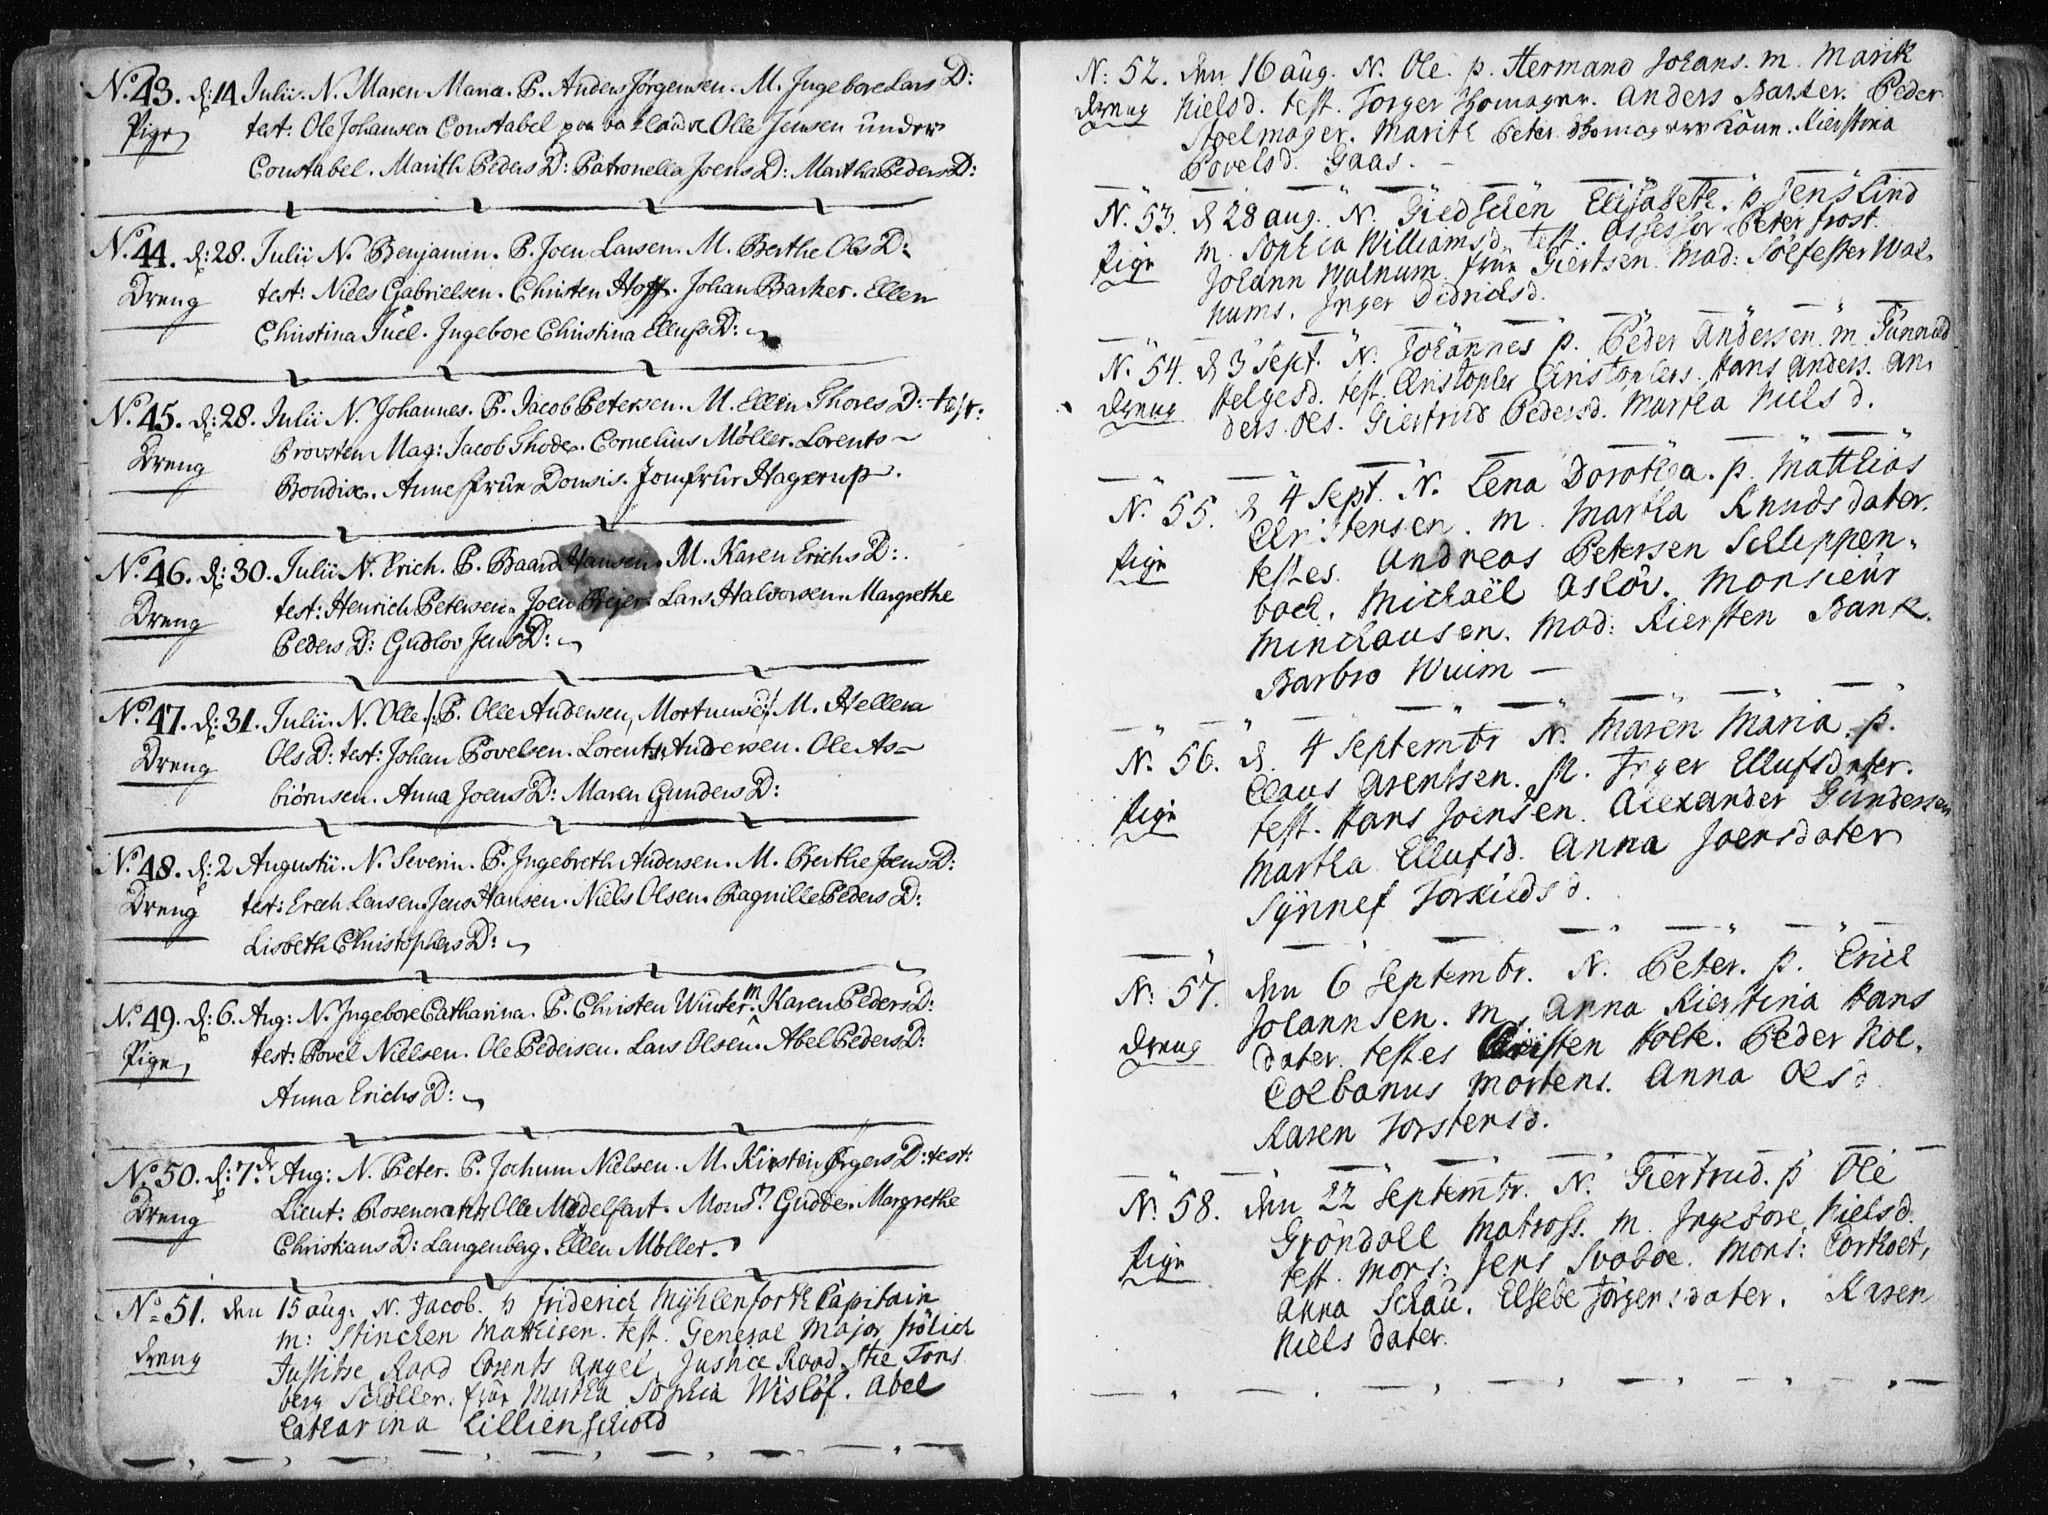 No. 43. d: 14 Julii. N. Maren Maria. P. Anders Jørgensen. M. Ingebore Lars D:
Pige test: Ole Johansen Constabel Olle Jensen under
Constabel. Marith Peders D: Patronella Joens D: Martha Peders D:
No. 44. d: 28. Julii N. Benjamin. P. Joen Larsen. M. Berthe Ols D:
Dreng test: Niels Gabrielsen. Christen Hoff. Johan Barker. Ellen
Christina Juel. Ingebore Christina Ellufs D:
No. 45. d: 28. Julii N. Johannes. P. Jacob Petersen. M. Ellen Thores D: test:
Dreng Provsten Mag: Jacob Thode. Cornelius Møller. Lorents
Bondix. Anne Frue Domsis. Jomfrue Hagerup.
No. 46. d: 30. Julii N. Erich. P. Baard Hansen. M. Karen Erichs D:
Dreng test: Henrich Petersen. Joen Beyer. Lars Halvorsen. Margrethe
Peders D: Gudlov Jens D:
No. 47. d: 31. Julii. N. Olle /: P. Olle Andersen, Mortensen :/ M. Hellena
Dreng Ols D: test: Johan Povelsen. Lorents Andersen. Ole As-
biørnsen. Anna Joens D: Maren Gunders D:
No. 48. d: 2 Augustii. N. Severin. P. Ingebreth Andersen. M. Berthe Joens D:
Dreng test: Erech Larsen. Jens Hansen. Niels Olsen. Ragnille Peders D:
Lisbeth Christophers D:
No. 49. d: 6. Aug: N. Ingebore Catharina. P. Christen Winter. M Karen Peders D:
Pige test: Povel Nielsen. Ole Pedersen. Lars Olsen. Abel Peders D:
Anna Erichs D:
No. 50. d: 7de Aug: N. Peter. P. Jochum Nielsen. M. Kirsten Ørgers D: test:
Dreng Lieut: Rosencrantz Olle Medelfart. Monsr Gudde. Margrethe
Christians D: Langenberg. Ellen Møller.
No 51. den 15 aug: N. Jacob. p friderich Mÿhlenforth Capitain
dreng m: Stinchen Mathisen. test. General Major frölich
Justitse Raad Lorents Angel, Justice Raad Stie Tons
berg Schøller. frue Martha Sophia Wisløf. Abel
Catharina Lillienschiold
N: 52. den 16 aug. N. Ole. p. Hermand Johans. m. Marith
dreng Nielsd. test. Torger Skomager. Anders Barker. Peder
Stoelmager. Marith Peter Skomagers Kone. Kierstina
Povelsd. Gaas.
N. 53. d 28 aug. N. Giedschen Elisabeth. p Jens Lind
Pige m. Sophia Williamsd. test. Assessor Peter Frost.
Johann Walnum. frue Giertsen. Mad: Sölfester Wal-
nums. Inger Didrichsd.
N. 54. d 3 Sept. N. Johannes p. Peder Andersen. m. Gunnild
dreng Helgesd. test. Christopher Christophers. Hans Anders. An-
ders Ols. Giertrud Pedersd. Martha Nielsd.
N. 55. d 4 Sept. N. Lena Dorothea. p. Matthias
Christensen. m. Martha Knudsdater.
Pige testes. Andreas Petersen Schleppen-
bach. Michaël Asløv. Monsieur
Minchausen. Mad: Kiersten Bank.
Barbro Wuim
N. 56. d. 4 Septembr N. Maren Maria. p.
Claus Arentsen. M. Inger Ellufsdater.
Pige test. Hans Joensen. Alexander Gundersen
Martha Ellufsd. Anna Joensdater
Synnef Torkildsd.
N: 57. den 6 Septembr. N. Peter. p. Erich
Johannsen. m. Anna Kierstina Hans
dreng dater. testes Christen Holte. Peder Hol.
Colbanus Mortens. Anna Olsd
Karen Torstensd.
N. 58. den 22 Septembr. N. Giertrud. p Ole
Gröndall Matross. m. Ingebore Nielsd.
Pige test. Mons: Jens Svaboe. Mons: Corthoet,
Anna Schau. Elsebe Jörgensdater. Karen
Niels dater.